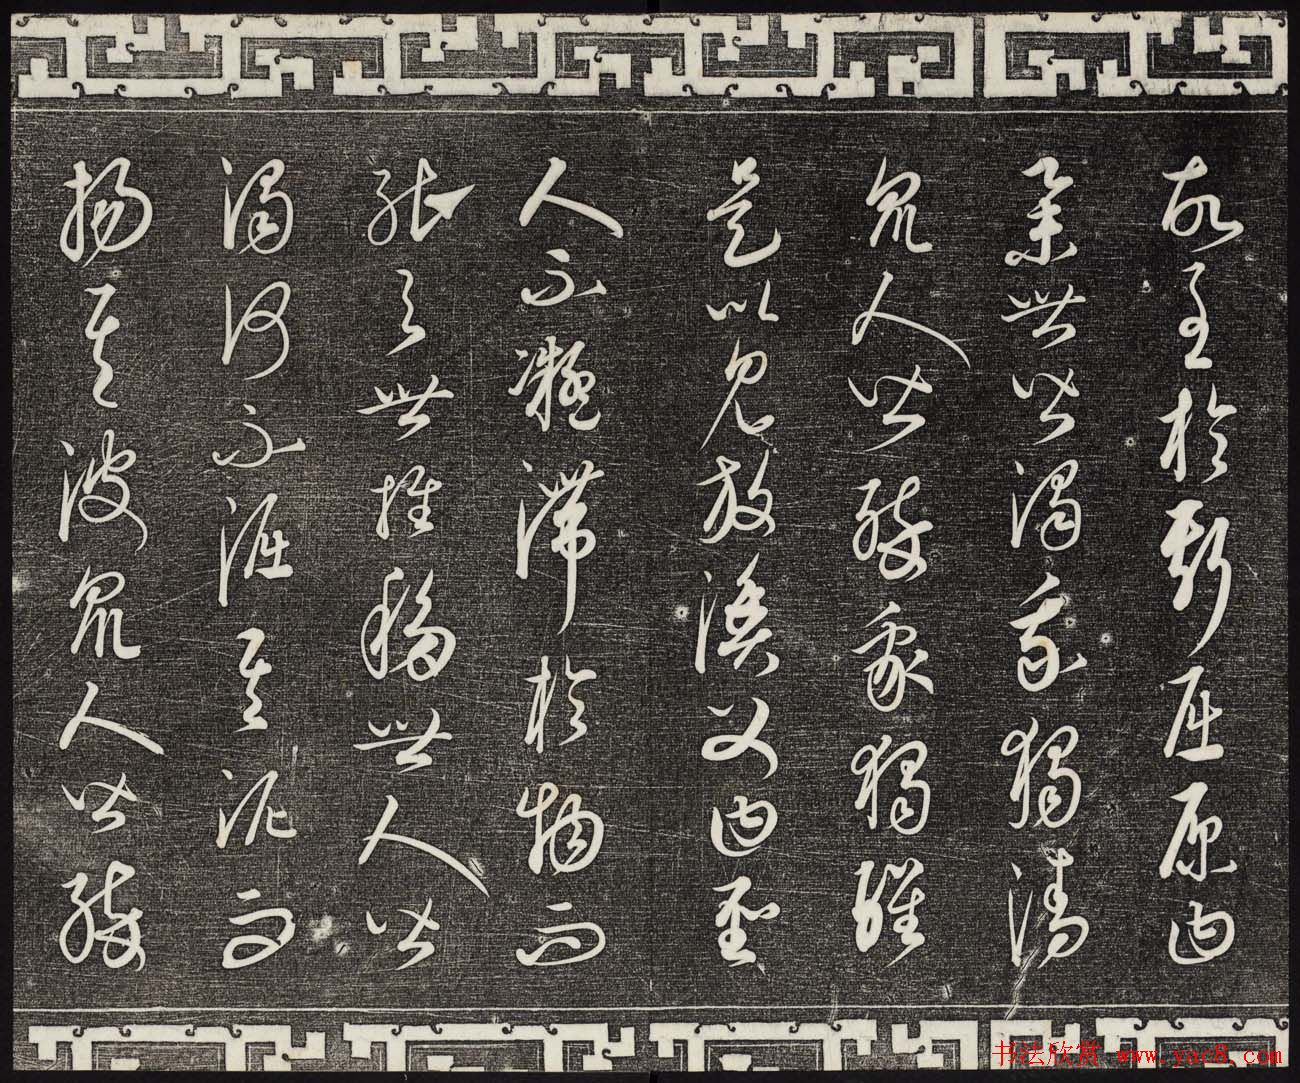 故至於斯屈原曰
舉世皆濁我獨清
眾人皆醉我獨醒
是以見放漁父曰聖
人不凝滯於物而
能與世推移世人皆
濁何不淈其泥而
揚其波眾人皆醉
书法欣赏 www.yac8.com